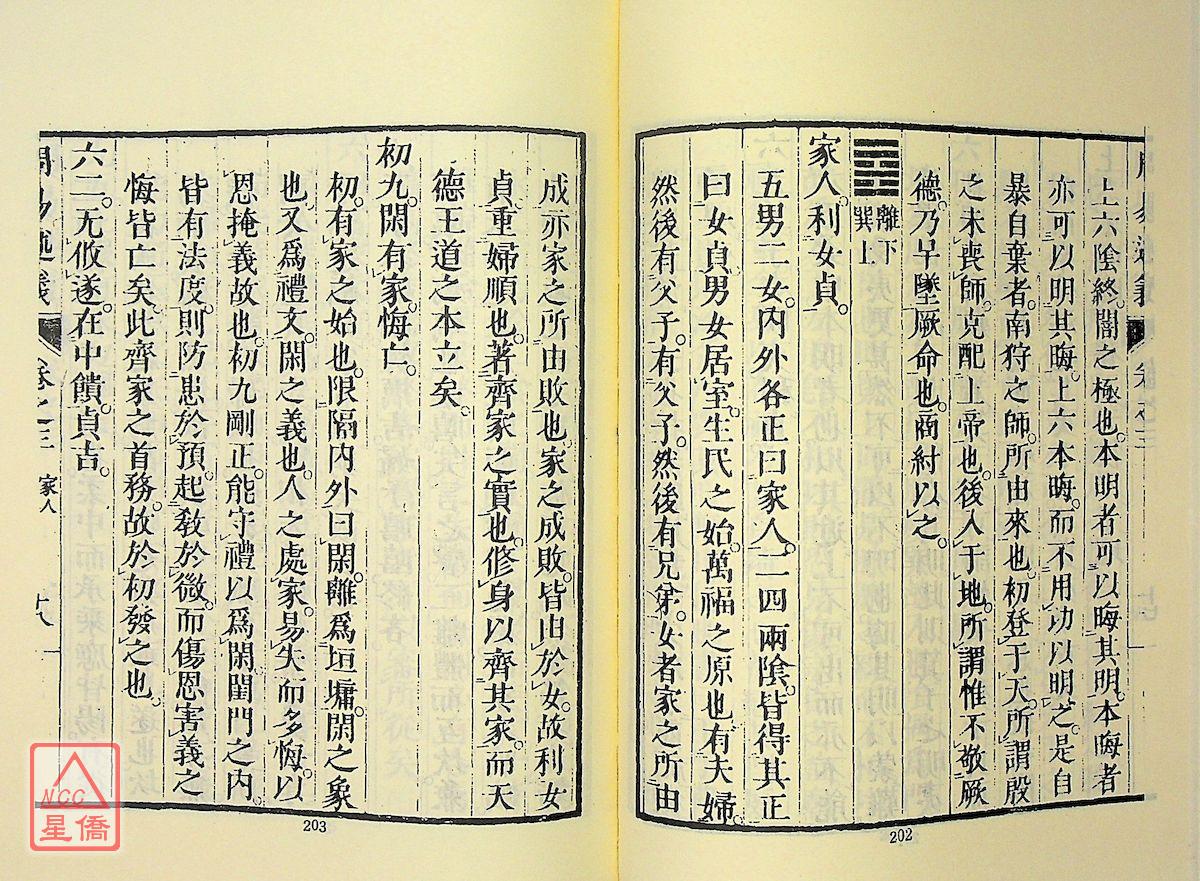 上六陰終。闇之極也。本明者可以晦其明。本晦者
亦可以明其晦。上六本晦。而不用功以明之。是自
暴自棄者。南狩之師。所由來也。初登于天。所謂殷
之未喪師。克配上帝也。後入于地。所謂惟不敬厥
德。乃早墜厥命也。商紂以之。
離下
巽上
家人。利女貞。
五男二女。內外各正曰家人。二四兩陰。皆得其正
曰女貞。男女居室。生民之始。萬福之原也。有夫婦。
然後有父子。有父子。然後有兄弟。女者家之所由
202
成。亦家之所由敗也。家之成敗。皆由於女。故利女
貞。重婦順也。著齊家之實也。修身以齊其家。而天
德王道之本立矣。
初九。閑有家。悔亡。
初。有家之始也。限隔內外曰閑。離爲垣墉。閑之象
也。又爲禮文。閑之義也。人之處家。易失而多悔。以
恩掩義故也。初九剛正。能守禮以爲閑。閨門之內。
皆有法度。則防患於預。起敎於微。而傷恩害義之
悔皆亡矣。此齊家之首務。故於初發之也。
六二。无攸遂。在中饋。貞吉。
周易述義 卷之三 家人 十八
203
NCC
星僑